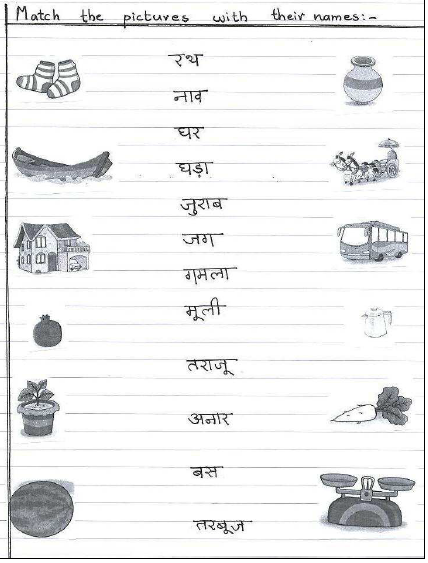 Match the pictures with their names:-
रथ
नाव
घर
घड़ा
जुराब
जग
गमला
मूली
तराजू
अनार
बस
तरबूज